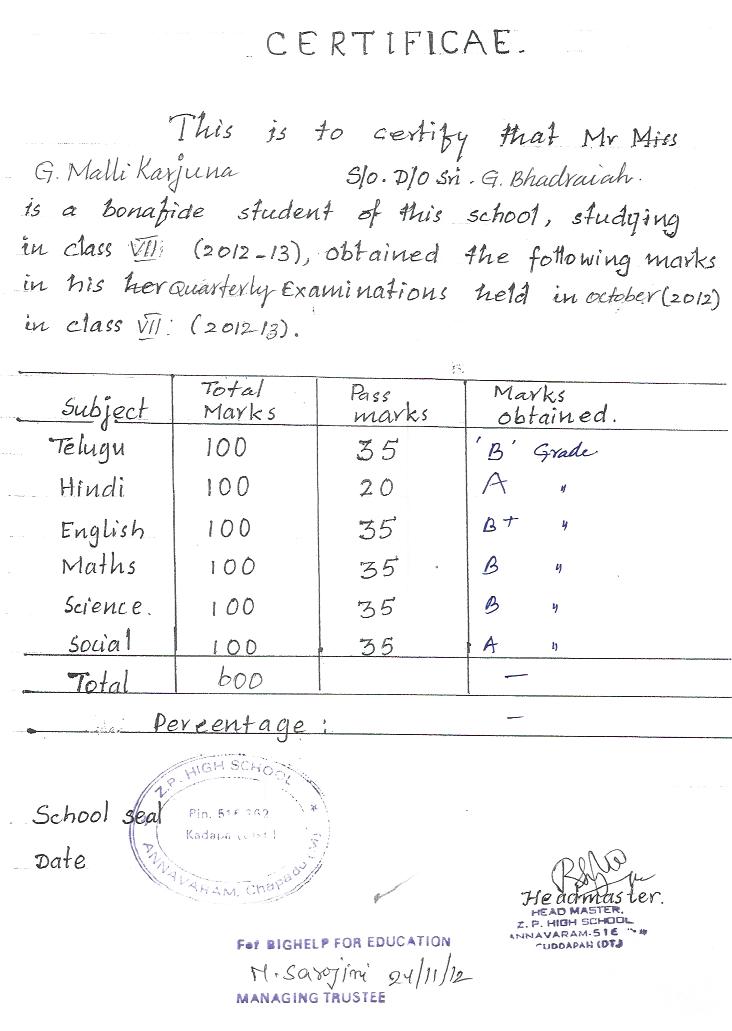 CERTIFICAE.
This is to certify that Mr Miss
G. Malli Karjuna S/o. D/o Sri. G. Bhadraiah.
is a bonafide student of this school, studying
in class VII: (2012-13), obtained the following marks
in his her Quarterly Examinations held in october (2012)
in class VII: (2012-13).
Subject Total Marks Pass marks Marks obtained.
Telugu 100 35 'B' Grade
Hindi 100 20 A "
English 100 35 B+ "
Maths 100 35 B "
Science. 100 35 B "
Social 100 35 A "
Total 600 —
Percentage : —
Z.P. HIGH SCHOOL
Pin.
Kadapa
ANNAVARAM, Chapadu (M)
School seal
Date
Headmaster.
HEAD MASTER,
Z. P. HIGH SCHOOL
ANNAVARAM-516
CUDDAPAH (DT)
For BIGHELP FOR EDUCATION
M. Sarojini 24/11/12
MANAGING TRUSTEE